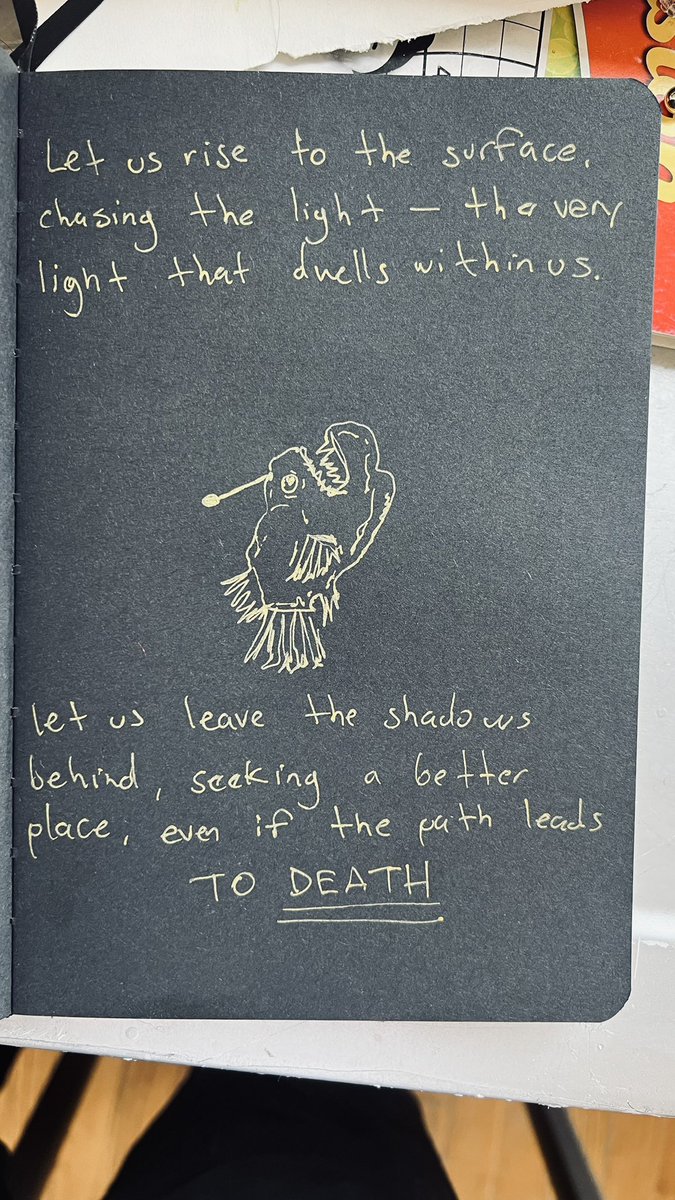 Let us rise to the surface,
chasing the light – the very
light that dwells within us.
let us leave the shadows
behind, seeking a better
place, even if the path leads
TO DEATH